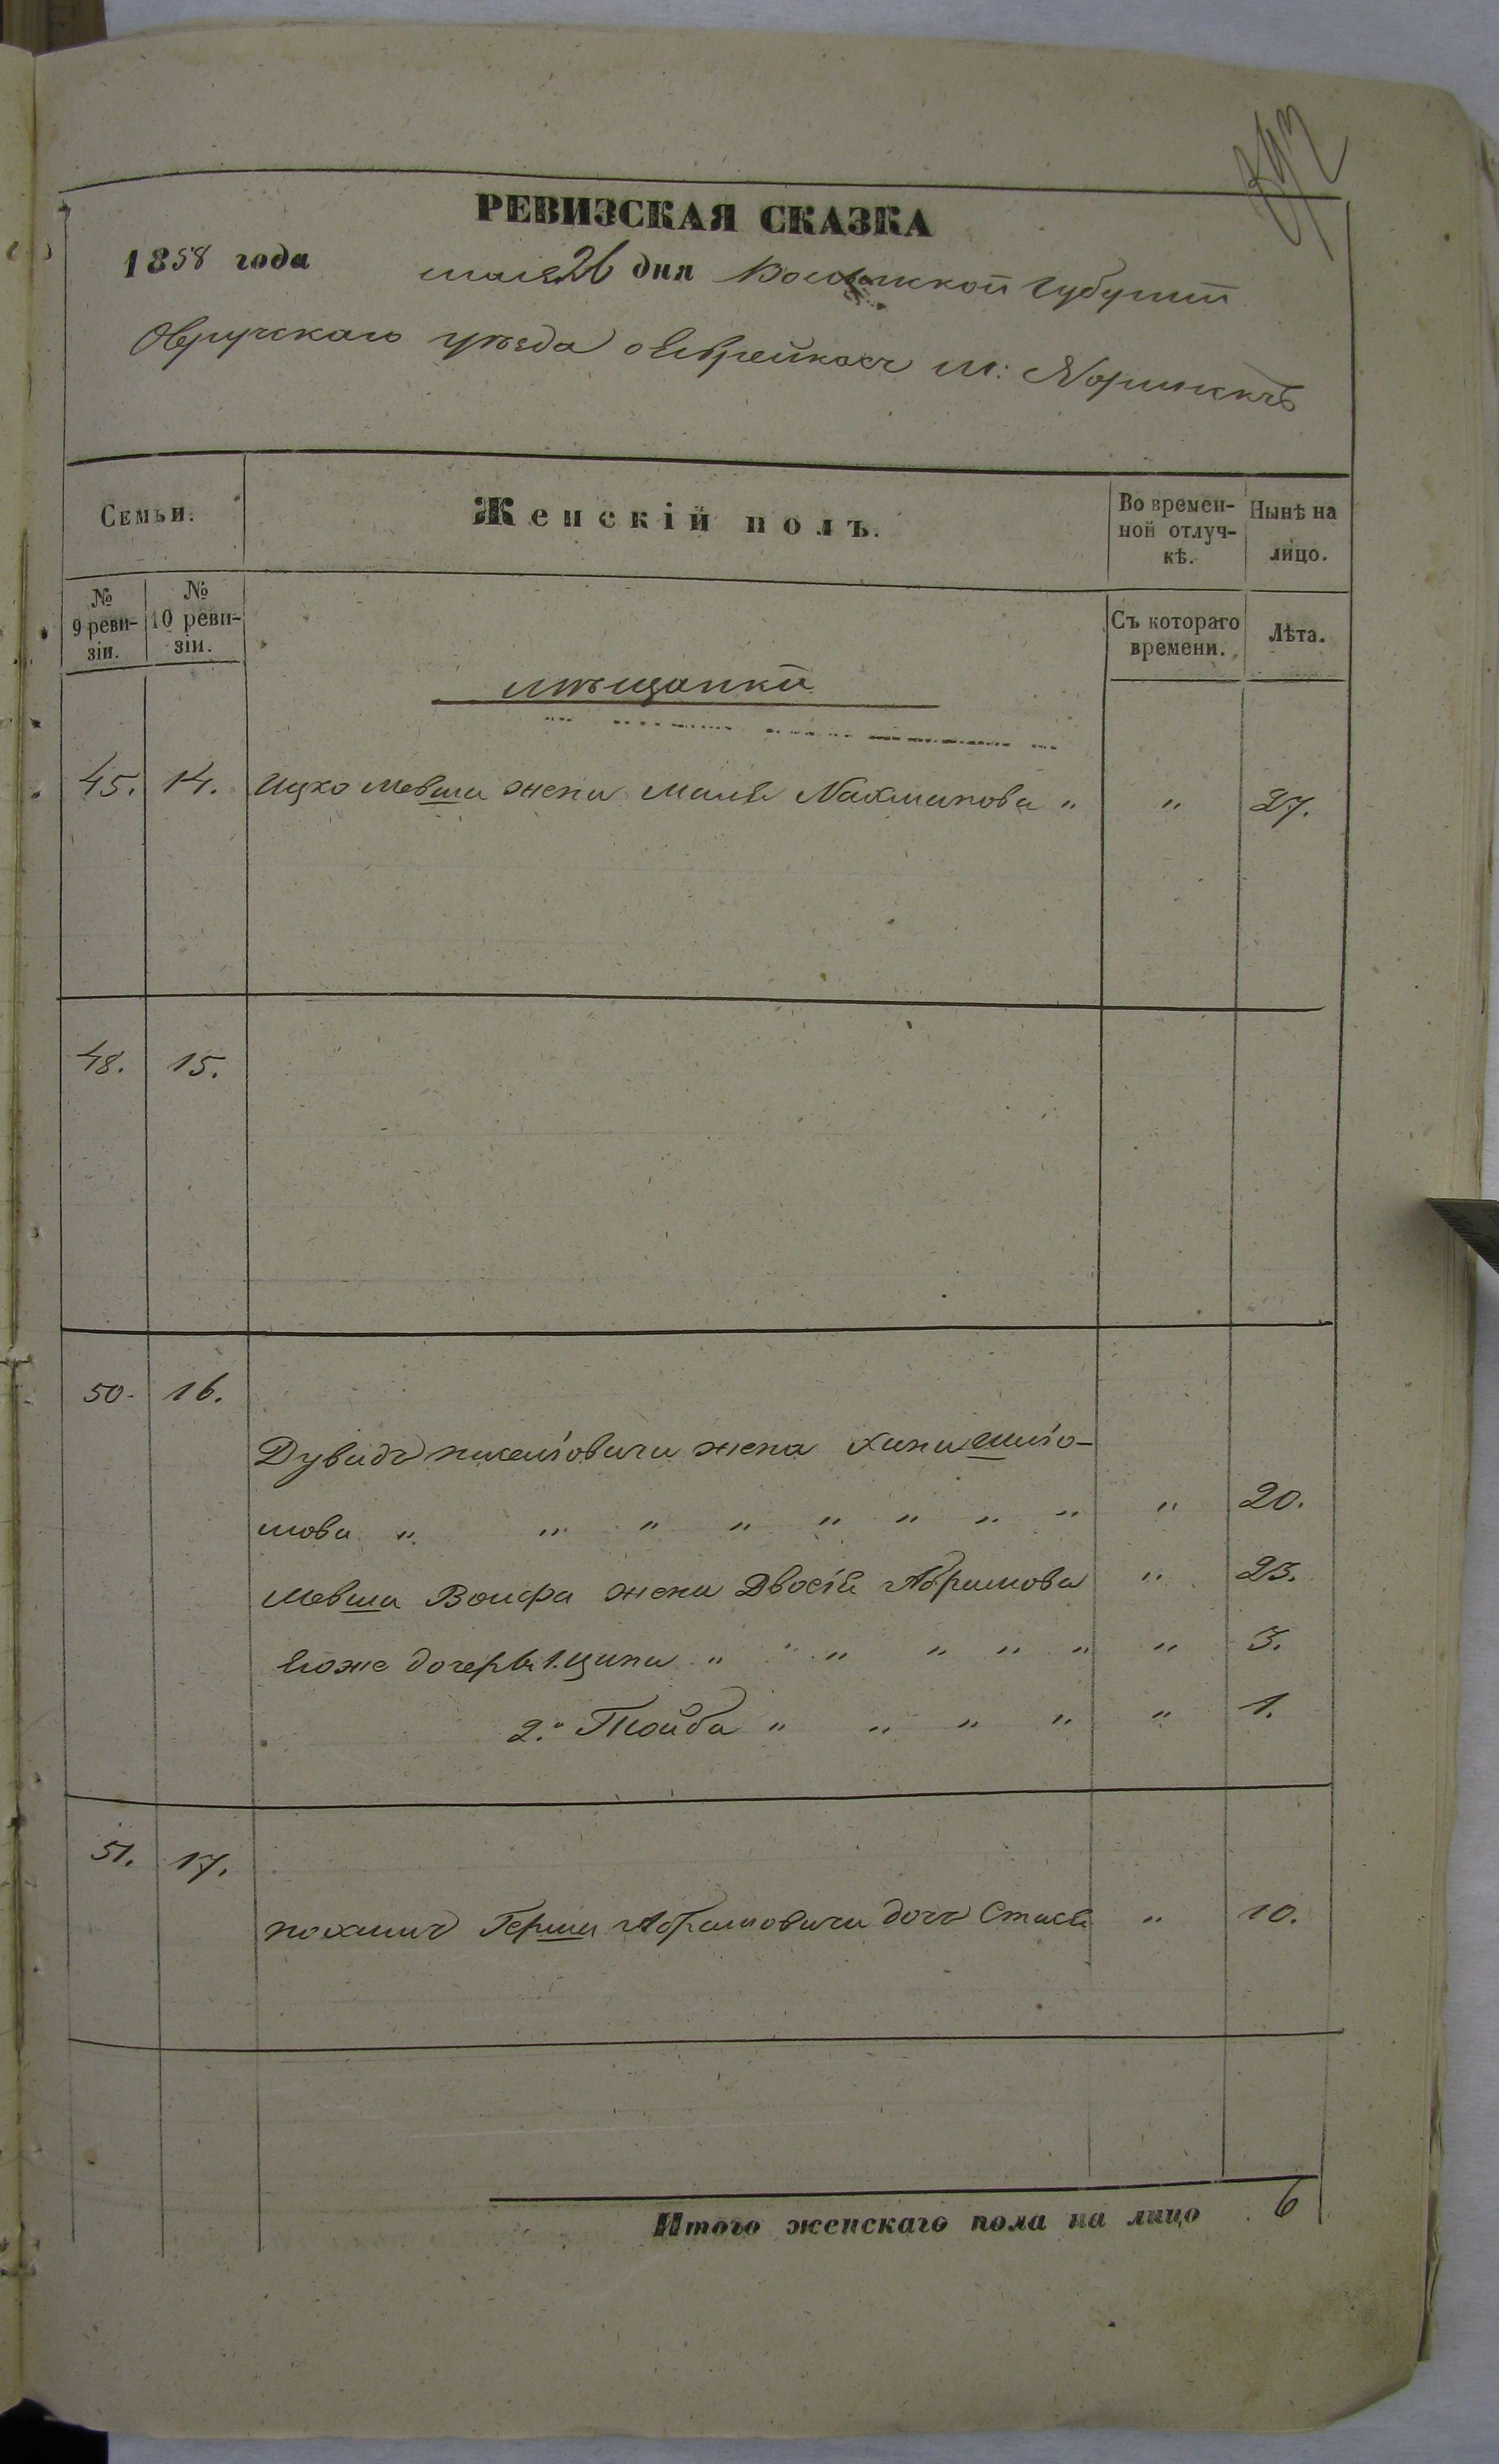 РЕВИЗСКАЯ СКАЗКА
1858 года мая 26 дня Волынской губерніи
Овручскаго уѣзда о Еврейкахъ м: Норинскъ
Семьи.
Женскій полъ.
Во времен-
ной отлуч-
кѣ.
Нынѣ на
лицо.
№
9 реви-
зіи.
№
10 реви-
зіи.
Съ котораго
времени.
Лѣта.
мѣщанки
45. 14. Ицко Мевша жена Маля Нахманова " " 27.
48. 15.
50. 16.
Дувидъ жена Хана Шліо-
мова " " " " " " " " " 20.
Мевша Волфа жена Двося Абрамова " 23.
Егоже дочери 1. Ципа " " " " " " " 3.
2.я Тойба " " " " " 1.
51. 17.
Нохима Герша Абрамовича дочь Стася " 10.
Итого женскаго пола на лицо 6